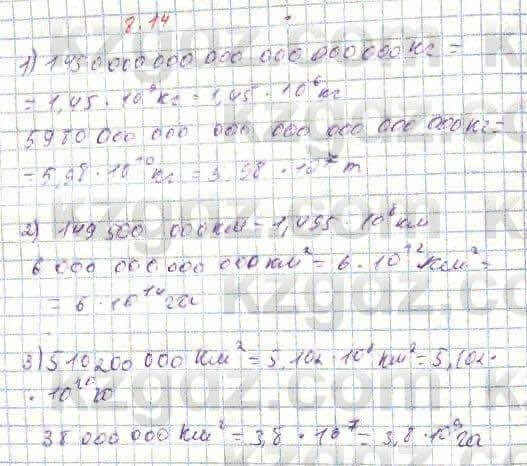 8.14
1) 1450000000 000 000 000 000 000 кг =
= 1,45 · 10⁹ кг = 1,45 · 10⁶ кг
5980 000 000 000 000 000 000 000 кг =
= 5,98 · 10 кг = 5,98 · 10 т
2) 149 500 000 км = 1,495 · 10⁸ км
6 000 000 000 000 км² = 6 · 10¹² км² =
= 6 · 10¹⁴ га
3) 510200 000 км² = 5,102 · 10⁸ км² = 5,102 ·
· 10¹⁰ га
38 000 000 км² = 3,8 · 10⁷ = 3,8 · 10⁹ га
kzgdz.com